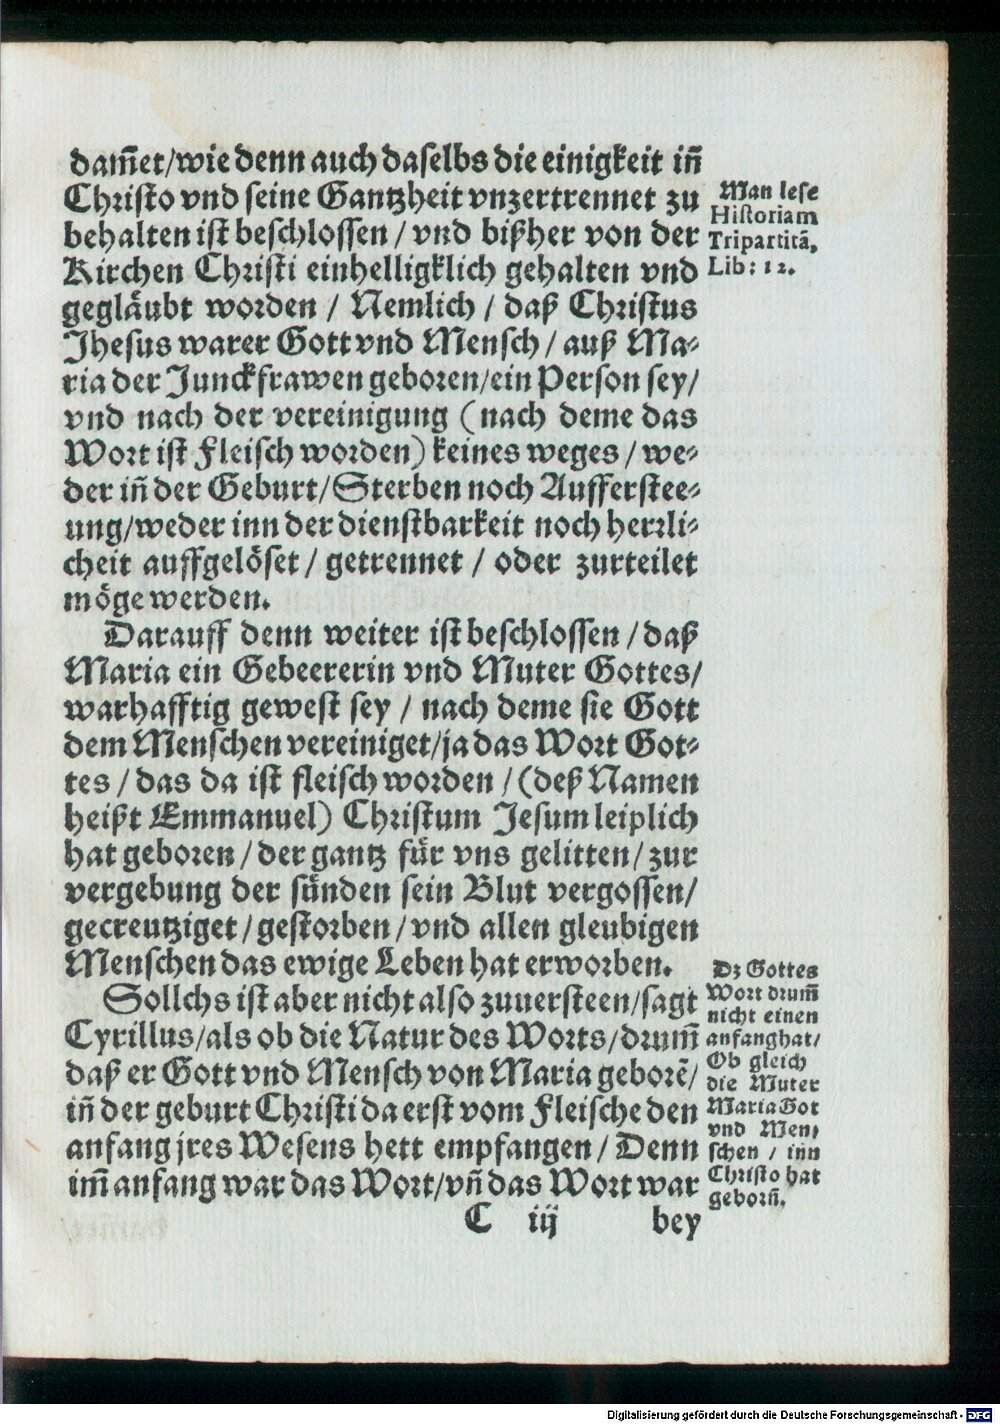 dam̃et/wie denn auch daselbs die einigkeit iñ
Christo vnd seine Gantzheit vnzertrennet zu
behalten ist beschlossen / vnd bißher von der
Kirchen Christi einhelligklich gehalten vnd
gegläubt worden / Nemlich / daß Christus
Jhesus warer Gott vnd Mensch / auß Ma-
ria der Junckfrawen geboren/ein Person sey/
vnd nach der vereinigung ( nach deme das
Wort ist fleisch worden) keines weges / we-
der iñ der Geburt/Sterben noch Aufferstee-
ung/weder inn der dienstbarkeit noch herrli-
cheit auffgelöset / getrennet / oder zurteilet
möge werden.
Darauff denn weiter ist beschlossen / daß
Maria ein Gebeererin vnd Muter Gottes/
warhafftig gewest sey / nach deme sie Gott
dem Menschen vereiniget/ja das Wort Got-
tes / das da ist fleisch worden / (deß Namen
heißt Emmanuel) Christum Jesum leiplich
hat geboren / der gantz für vns gelitten/ zur
vergebung der sünden sein Blut vergossen/
gecreutziget / gestorben / vnd allen gleubigen
Menschen das ewige Leben hat erworben.
Sollchs ist aber nicht also zuuersteen/sagt
Cyrillus/als ob die Natur des Worts/drum̃
daß er Gott vnd Mensch von Maria geborẽ/
iñ der geburt Christi da erst vom Fleische den
anfang jres Wesens hett empfangen / Denn
im̃ anfang war das Wort/vñ das Wort war
C iij bey
Man lese
Historiam
Tripartitã,
Lib: 12.
Dz Gottes
Wort drum̃
nicht einen
anfang hat/
Ob gleich
die Muter
Maria Got
vnd Men-
schen / inn
Christo hat
geborñ.
Digitalisierung gefördert durch die Deutsche Forschungsgemeinschaft - DFG